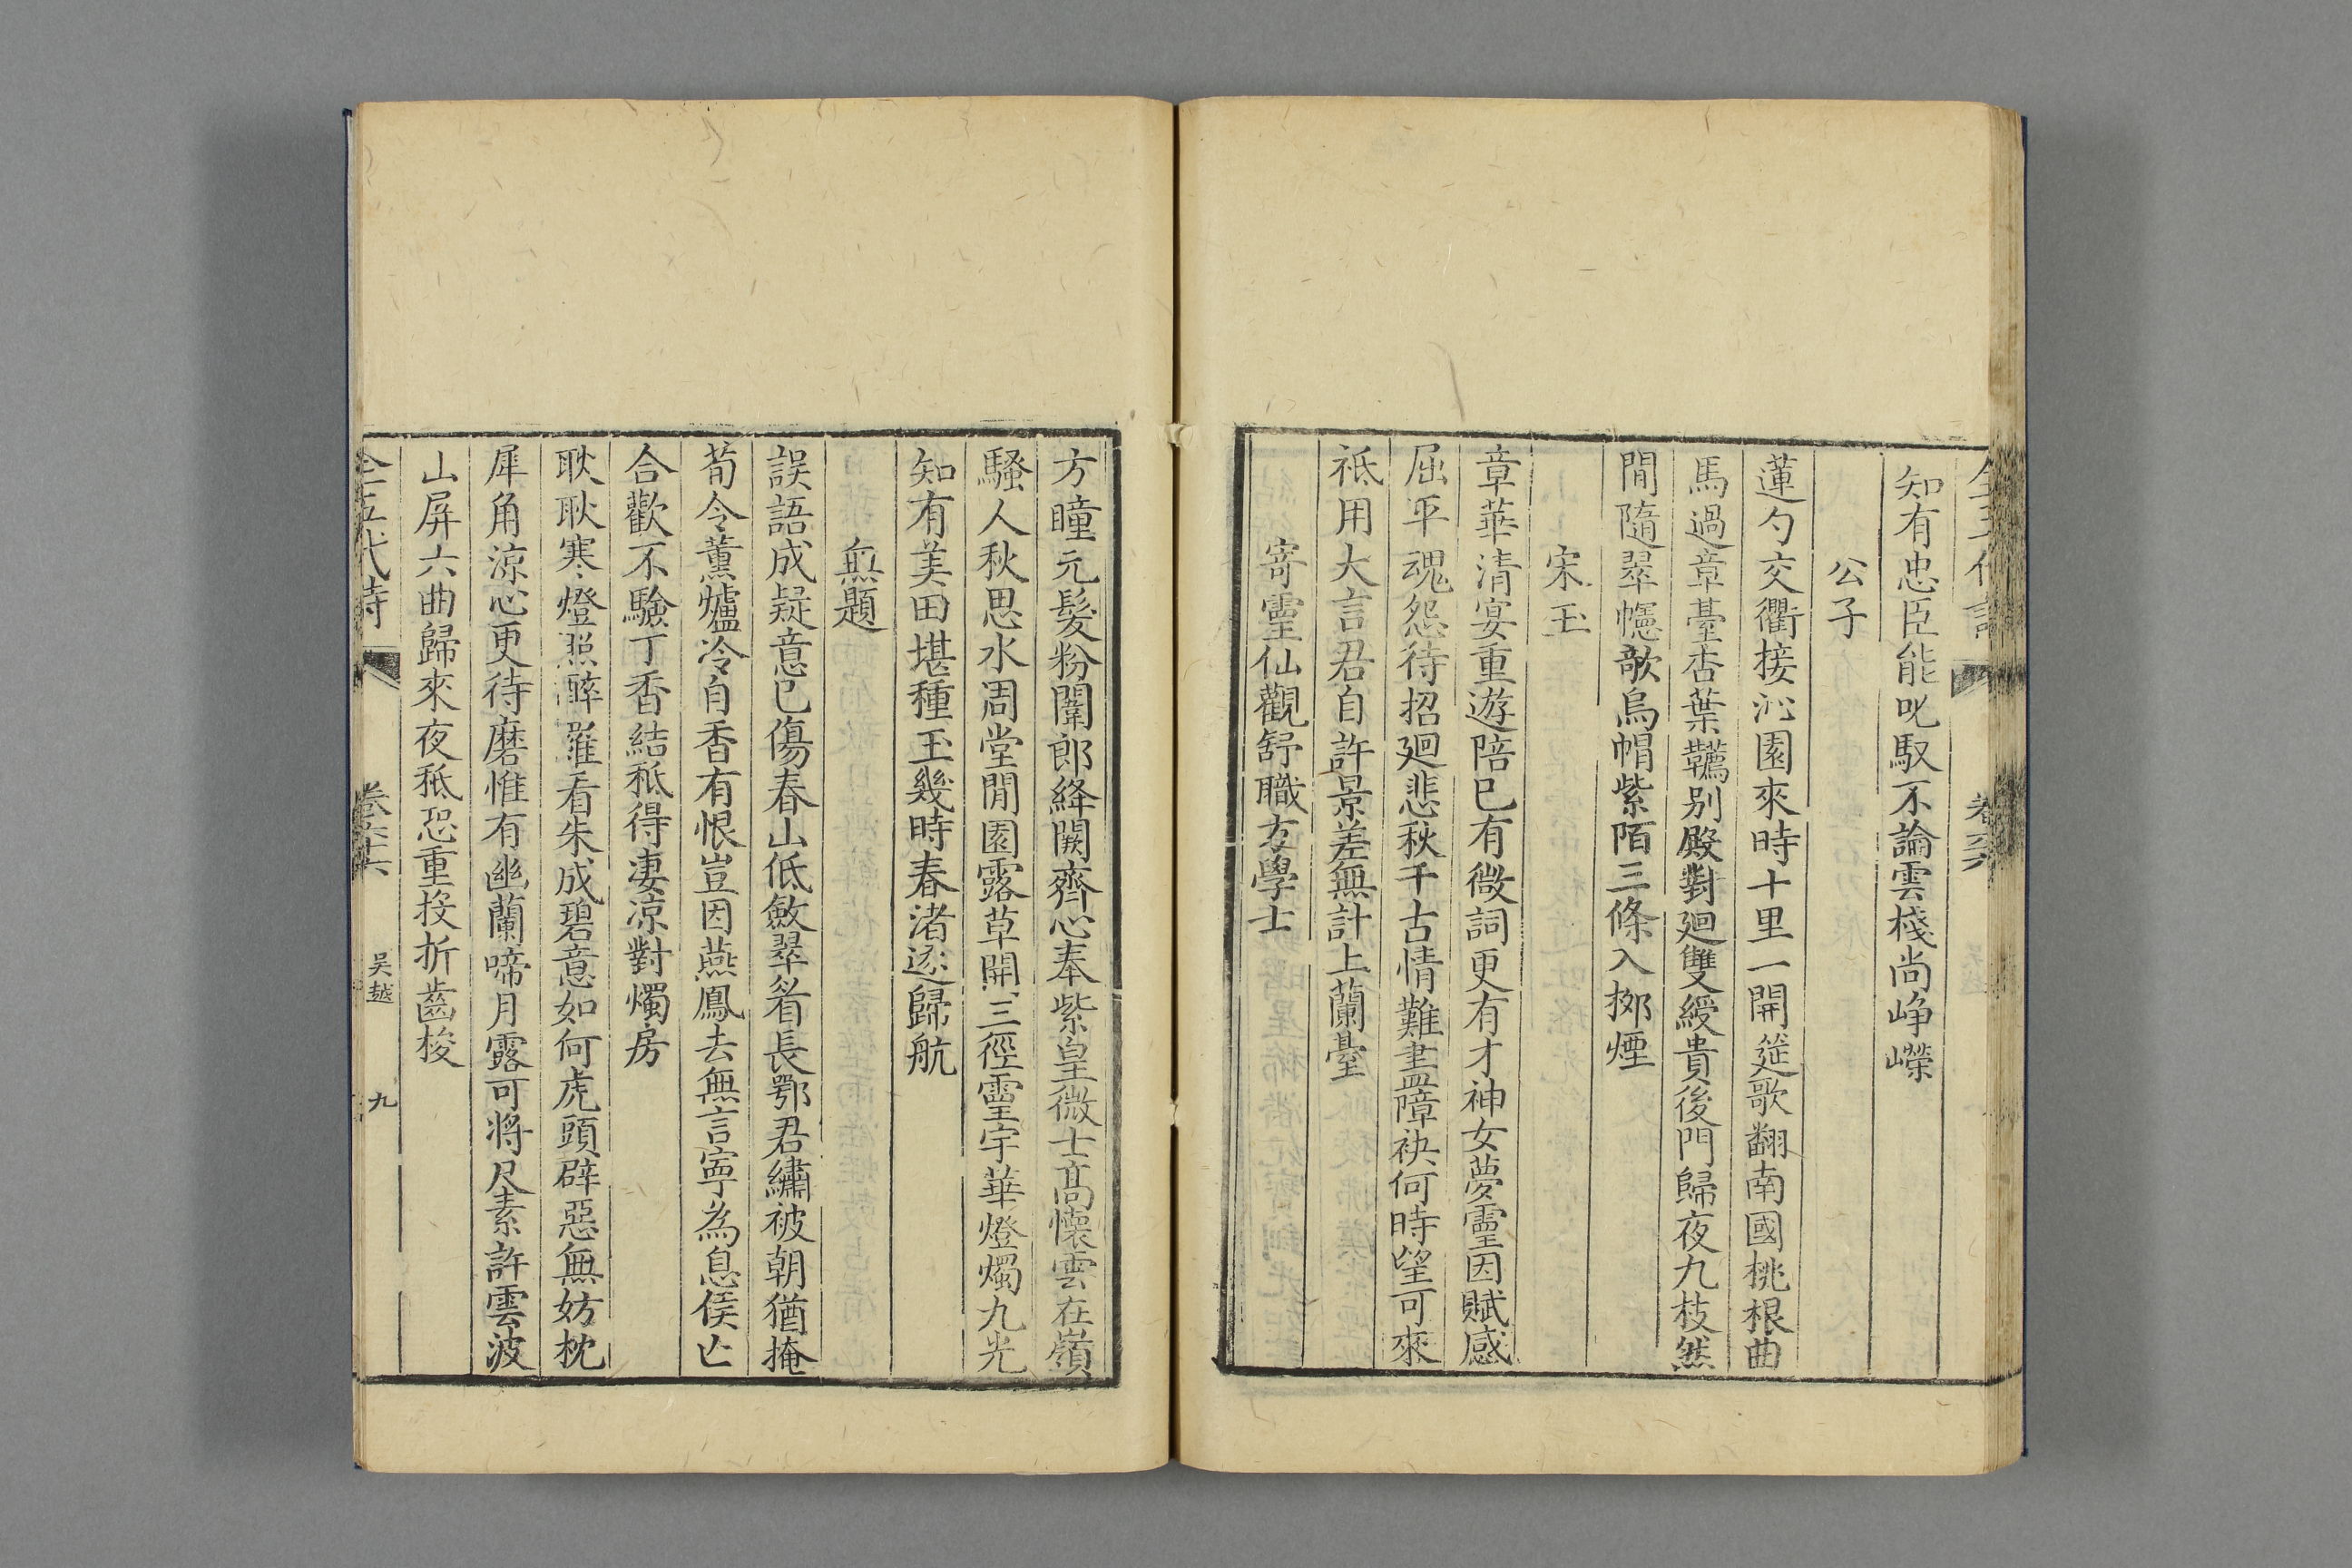 知有忠臣能叱馭不論雲棧尚崢嶸
公子
蓮勺交衢接沁園來時十里一開筵歌翻南國桃根曲
馬過章臺杏葉韉别殿對廻雙綬貴後門歸夜九枝然
閒隨翠幰欹烏帽紫陌三條入挪煙
宋玉
章華清宴重遊陪已有微詞更有才神女夢靈因賦感
屈平魂怨待招廻悲秋千古情難盡障袂何時望可來
祗用大言君自許景差無計上蘭臺
寄靈仙觀舒職方學士
方瞳元髮粉闈郎絳闕齊心奉紫皇微士高懷雲在嶺
騷人秋思水周堂閒園露草開三徑靈宇華燈燭九光
知有美田堪種玉幾時春渚逐歸航
無題
誤語成疑意已傷春山低斂翠眉長鄂君繡被朝猶掩
荀令薰爐冷自香有恨豈因燕鳳去無言寧為息侯亡
合歡不驗丁香結秪得凄涼對燭房
耿耿寒燈照醉羅看朱成碧意如何虎頭辟惡無妨枕
犀角涼心更待磨惟有幽蘭啼月露可將尺素許雲波
山屏六曲歸來夜秪恐重投折齒梭
全五代詩 吴越 九